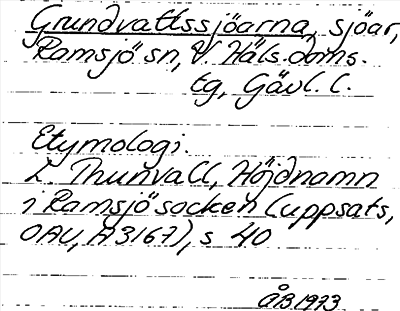 Grundvattssjöarna, sjöar,
Ramsjö sn, V. Häls. doms.
tg, Gävl. l.
Etymologi.
L. Thunvall, Höjdnamn
i Ramsjö socken (uppsats,
OAU, A3167), s 40
ÅB 1973